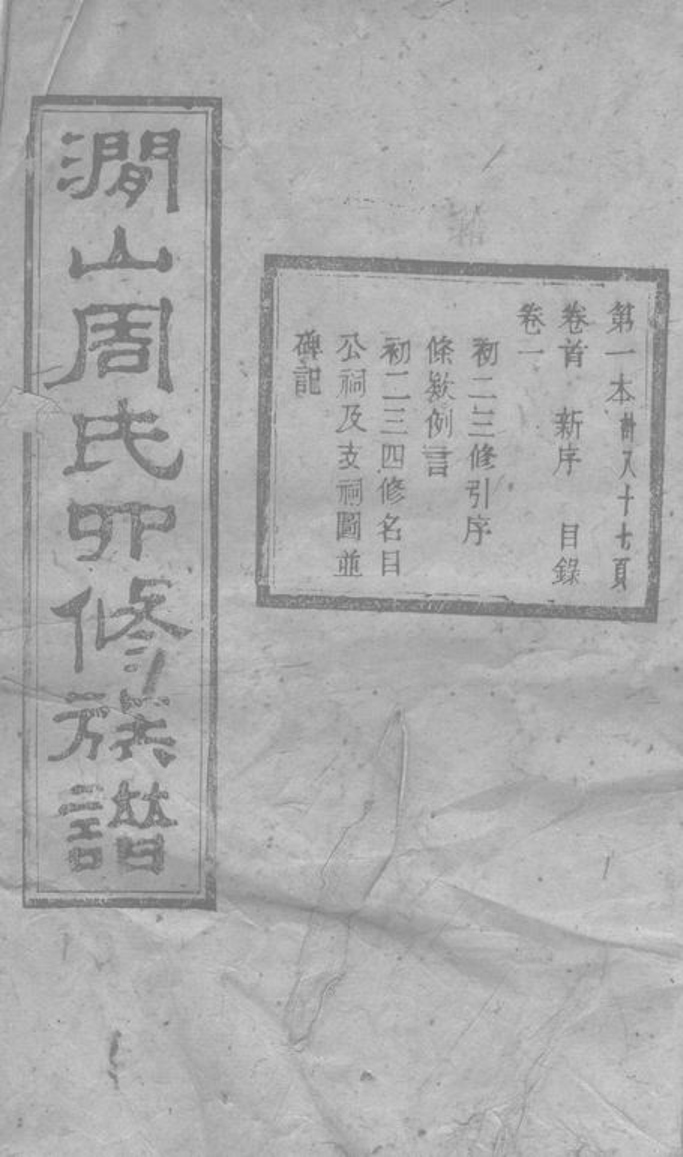 第一本八十七頁
卷首 新序 目錄
卷一
初二三修引序
條欵例言
初二三四修名目
公祠及支祠圖並
碑記
澗山周氏四修族譜